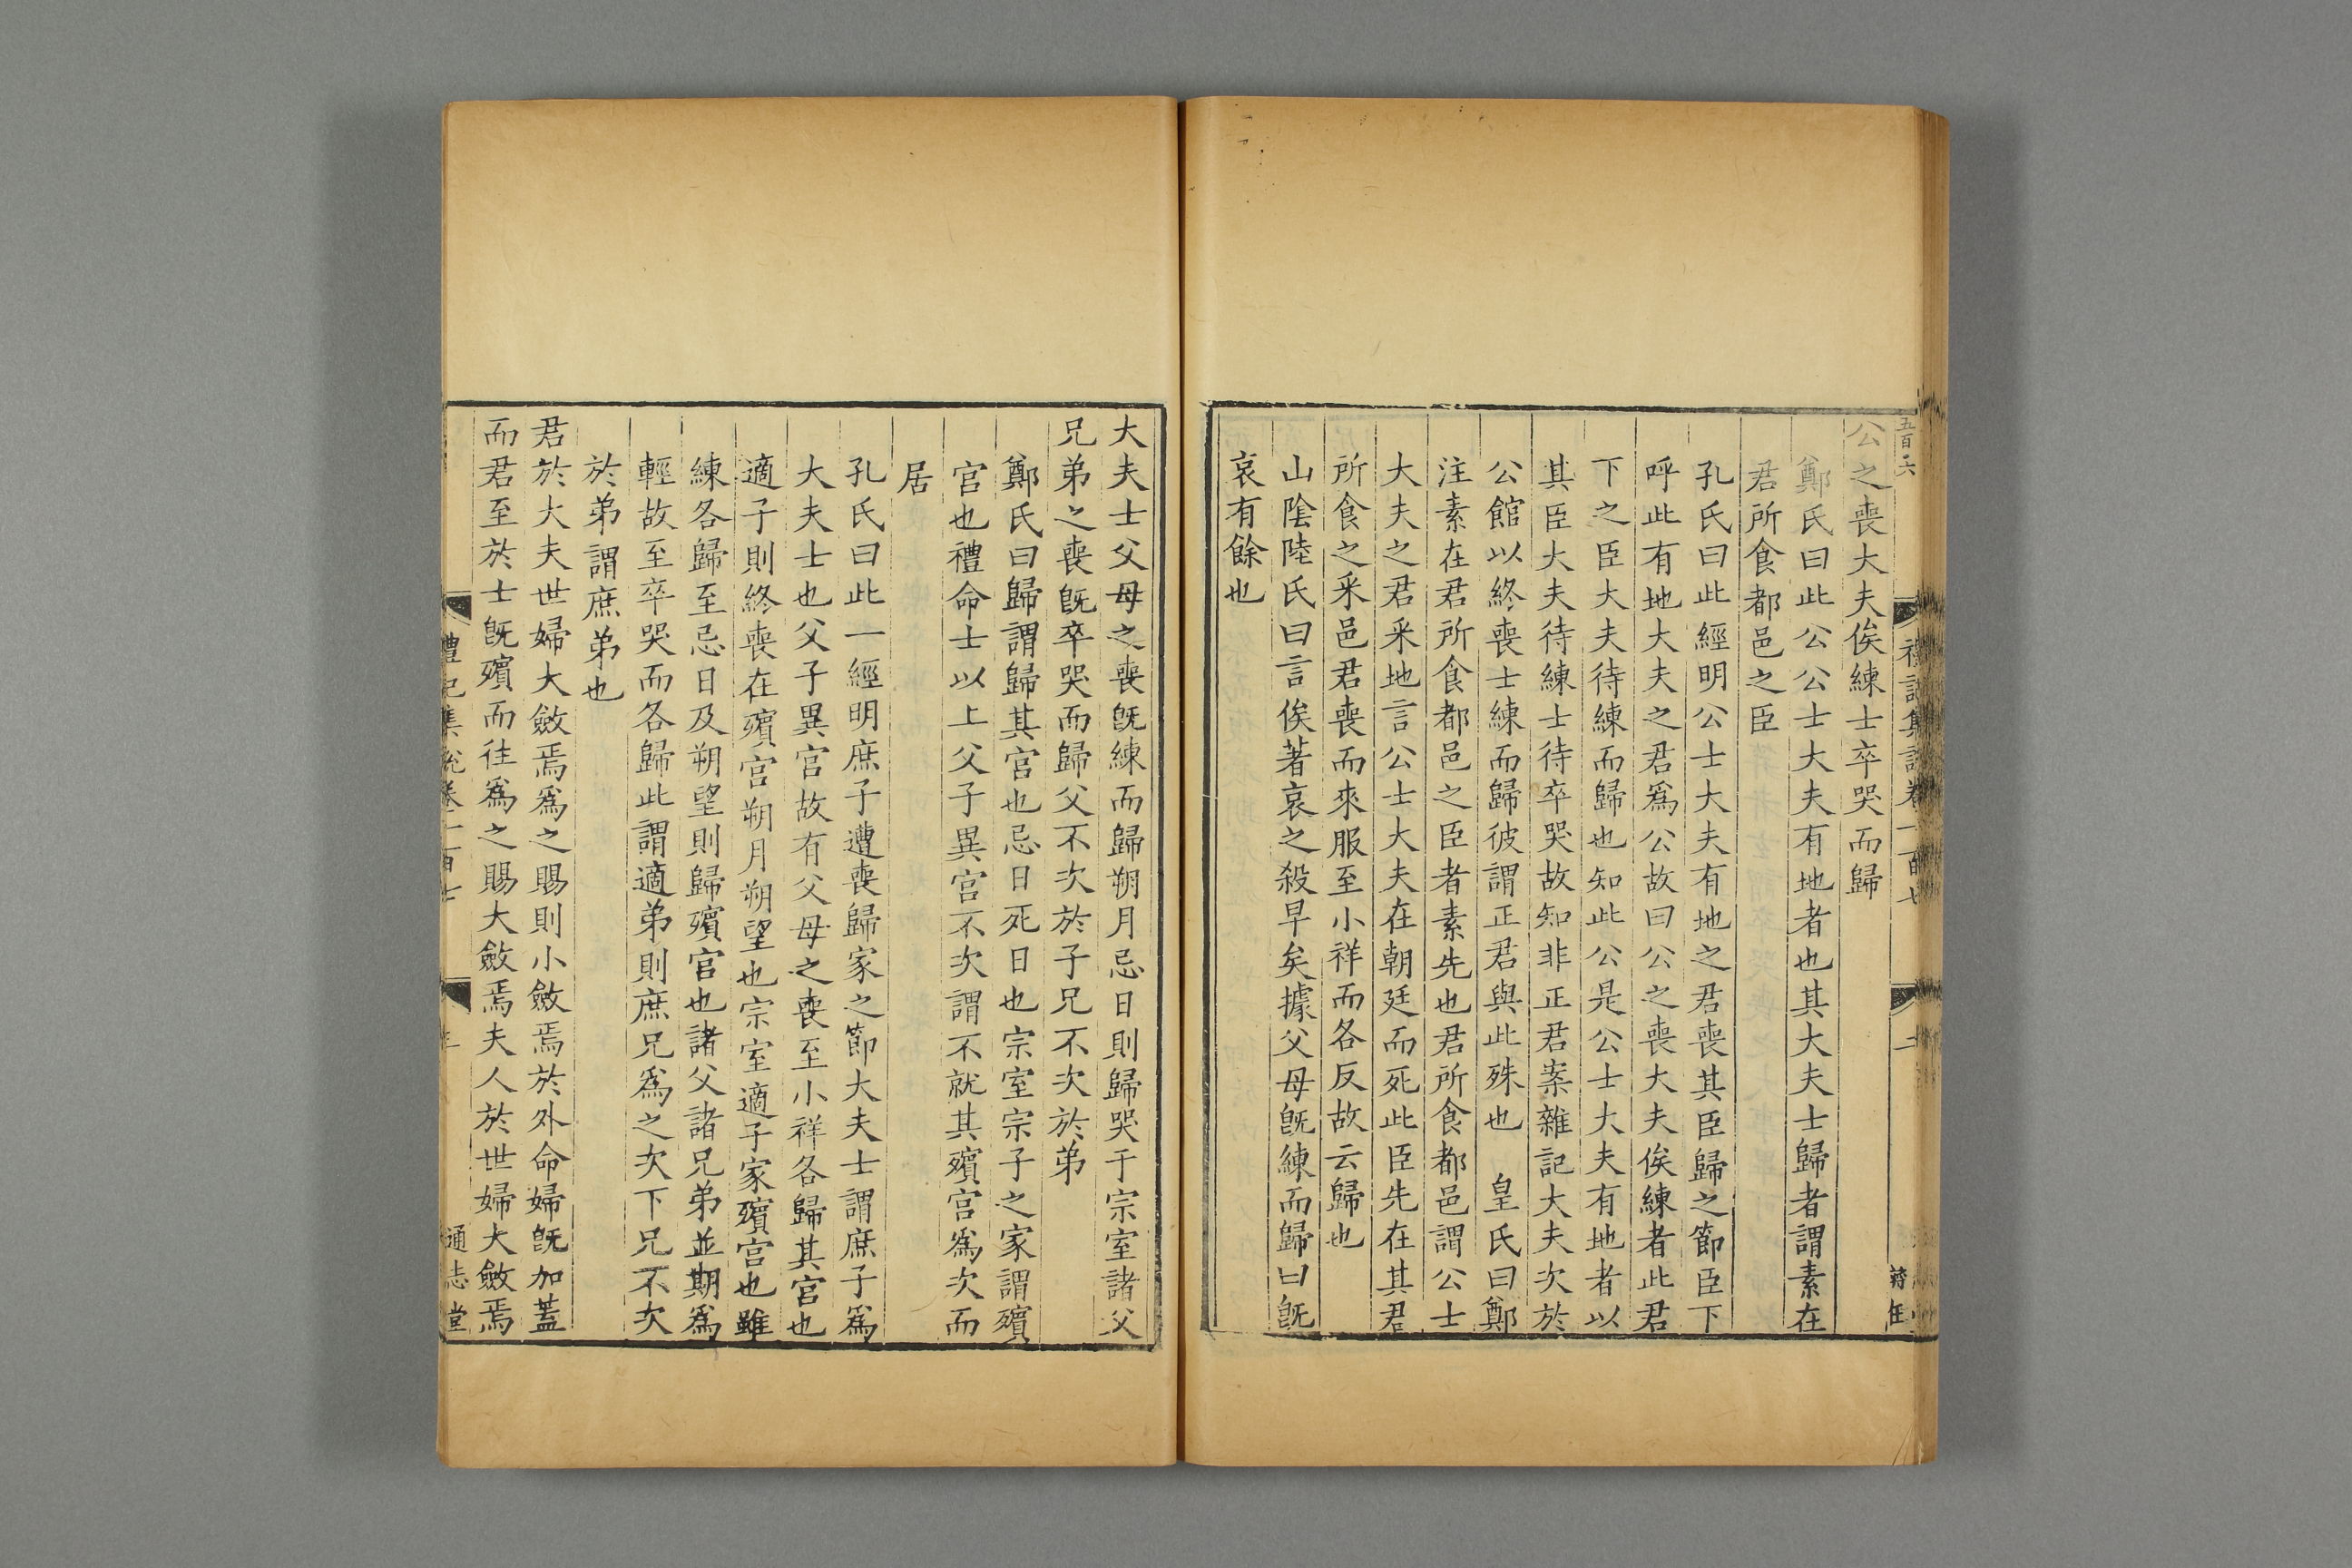 五百六
禮記集說卷一百七
二
公之喪大夫俟練士卒哭而歸
鄭氏曰此公公士大夫有地者也其大夫士歸者謂素在
君所食都邑之臣
孔氏曰此經明公士大夫有地之君喪其臣歸之節臣下
呼此有地大夫之君爲公故曰公之喪大夫俟練者此君
下之臣大夫待練而歸也知此公是公士大夫有地者以
其臣大夫待練士待卒哭故知非正君案雜記大夫次於
公館以終喪士練而歸彼謂正君與此殊也　皇氏曰鄭
注素在君所食都邑之臣者素先也君所食都邑謂公士
大夫之君采地言公士大夫在朝廷而死此臣先在其君
所食之采邑君喪而來服至小祥而各反故云歸也
山陰陸氏曰言俟著哀之殺早矣據父母旣練而歸曰旣
哀有餘也
大夫士父母之喪旣練而歸朔月忌日則歸哭于宗室諸父
兄弟之喪旣卒哭而歸父不次於子兄不次於弟
鄭氏曰歸謂歸其宮也忌日死日也宗室宗子之家謂殯
宮也禮命士以上父子異宮不次謂不就其殯宮爲次而
居
孔氏曰此一經明庶子遭喪歸家之節大夫士謂庶子爲
大夫士也父子異宮故有父母之喪至小祥各歸其宮也
適子則終喪在殯宮朔月朔望也宗室適子家殯宮也雖
練各歸至忌日及朔望則歸殯宮也諸父諸兄弟並期爲
輕故至卒哭而各歸此謂適弟則庶兄爲之次下兄不次
於弟謂庶弟也
君於大夫世婦大斂焉爲之賜則小斂焉於外命婦旣加蓋
而君至於士旣殯而往爲之賜大斂焉夫人於世婦大斂焉
禮記集說卷一百七
通志堂